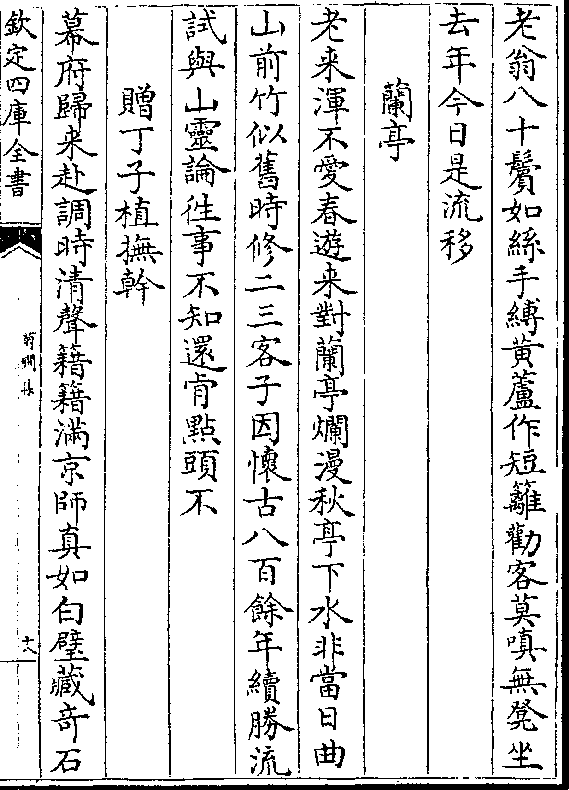 老翁八十鬢如絲手縛黃蘆作短籬勸客莫嗔無凳坐
去年今日是流移
蘭亭
老来渾不愛春遊来對蘭亭爛漫秋亭下水非當日曲
山前竹似舊時修二三客子因懷古八百餘年續勝流
試與山靈論徃事不知還肯點頭不
贈丁子植撫幹
幕府歸来赴調時清聲籍籍滿京師真如白璧藏奇石
欽定四庫全書
十八